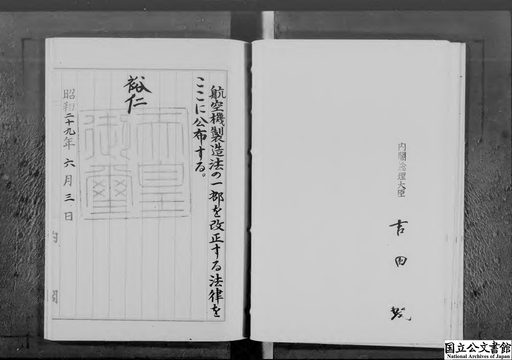 航空機製造法の一部を改正する法律を
ここに公布する。
裕仁
天皇
御璽
昭和二十九年六月三日
内閣
内閣総理大臣
吉田茂
国立公文書館
National Archives of Japan